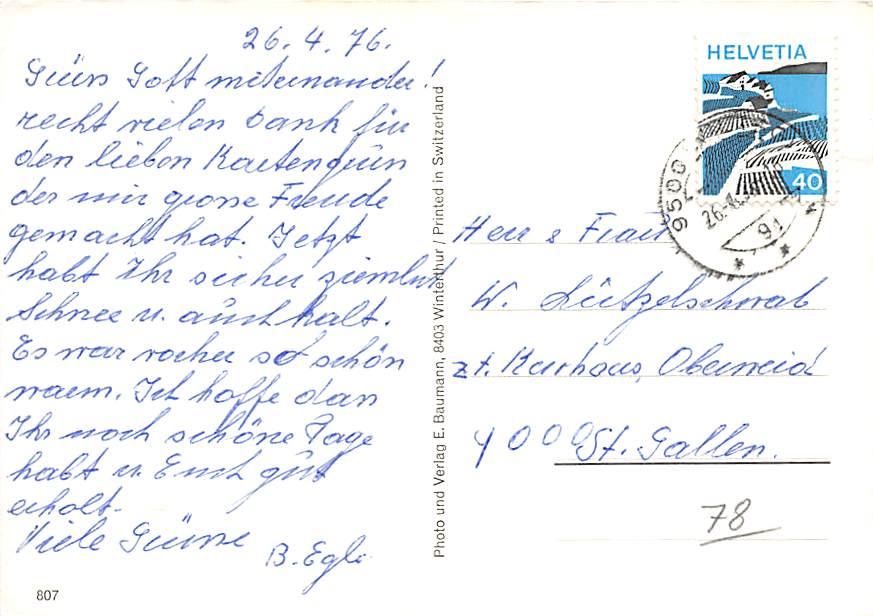 26.4.76.
Grüss Gott miteinander!
recht vielen Dank für
den lieben Kartengruss
der mir grosse Freude
gemacht hat. Jetzt
habt Ihr sicher ziemlich
Schnee u. auch kalt.
Es war vorher so schön
warm. Ich hoffe dass
Ihr noch schöne Tage
habt u. Euch gut
erholt.
Viele Grüsse
B. Egli
807
Photo und Verlag E. Baumann, 8403 Winterthur / Printed in Switzerland
HELVETIA
40
9500
26.
91
Herr & Frau
W. Lützelschwab
zt. Kurhaus, Oberwaid
9000 St. Gallen.
78